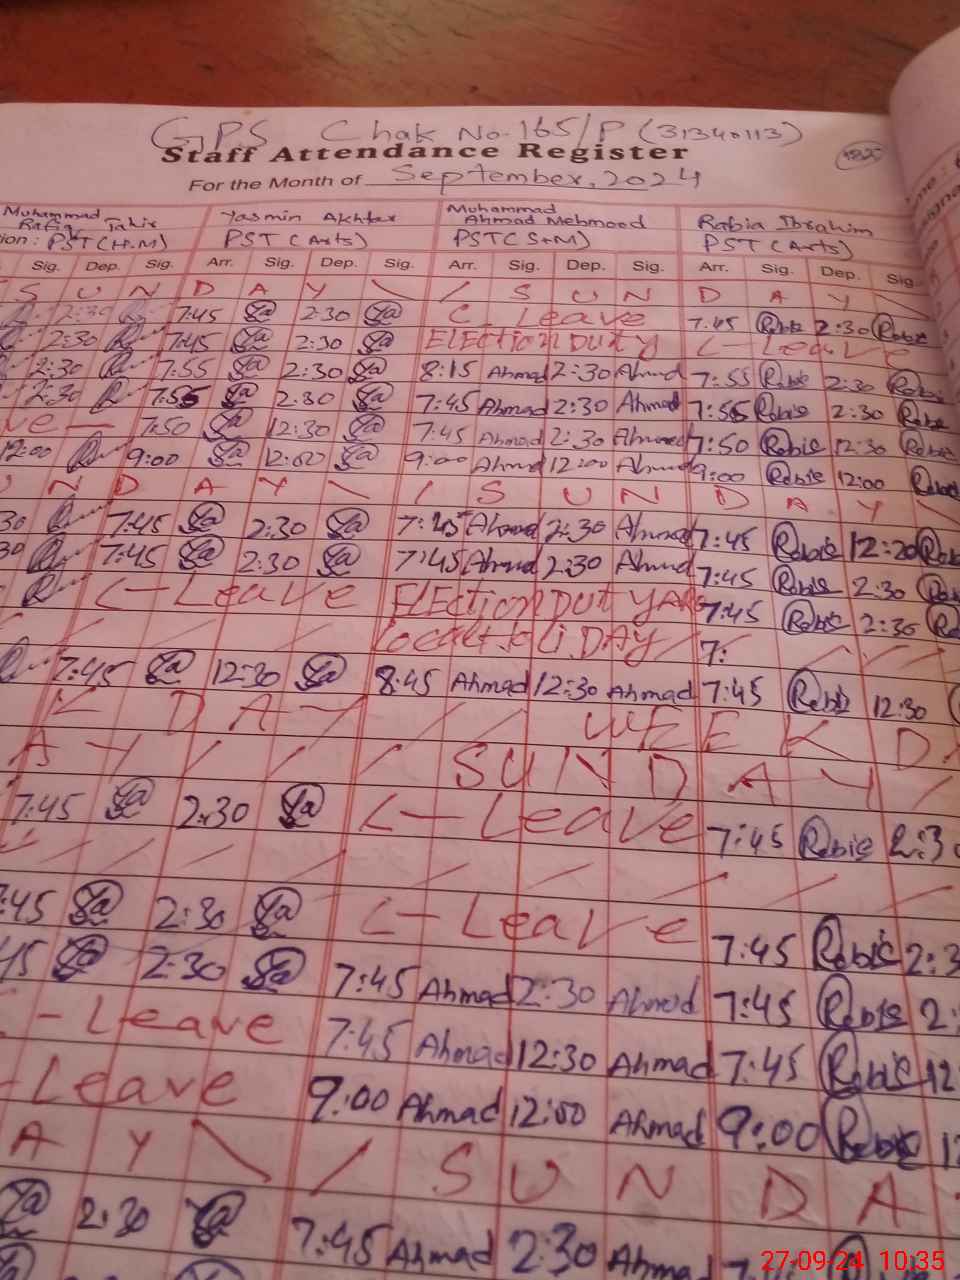 GPS Chak No. 165/P (31340113)
Staff Attendance Register
For the Month of September, 2024
Muhammad Rafiq Tahir Yasmin Akhtar Muhammad Ahmad Mehmood Rabia Ibrahim
ion: PST (H.M) PST (Arts) PST (S+M) PST (Arts)
Sig. Dep. Sig. Arr. Sig. Dep. Sig. Arr. Sig. Dep. Sig. Arr. Sig. Dep. Sig
S U N D A Y \ / S U N D A Y \
2:30 7:45 Ya 2:30 Ya C-Leave 7:45 Rabie 2:30 Rabie
2:30 7:45 Ya 2:30 Ya ELECtion DUtY C-Leave
2:30 7:55 Ya 2:30 Ya 8:15 Ahmad 2:30 Ahmad 7:55 Rabie 2:30 Rabie
2:30 7:55 Ya 2:30 Ya 7:45 Ahmad 2:30 Ahmad 7:55 Rabie 2:30 Rabie
ve — 7:50 Ya 12:30 Ya 7:45 Ahmad 2:30 Ahmad 7:50 Rabie 12:30 Rabie
12:00 9:00 Ya 12:00 Ya 9:00 Ahmad 12:00 Ahmad 9:00 Rabie 12:00 Rabie
N D A Y \ / S U N D A Y
30 7:45 Ya 2:30 Ya 7:45 Ahmad 2:30 Ahmad 7:45 Rabie 12:20 Rabie
30 7:45 Ya 2:30 Ya 7:45 Ahmad 2:30 Ahmad 7:45 Rabie 2:30 Rabie
C-Leave ELECtion DUtY 7:45 Rabie 2:30
LocaL HoLiDAY 7:
7:45 Ya 12:30 Ya 8:45 Ahmad 12:30 Ahmad 7:45 Rabie 12:30
K D A Y / / / WEEK D
A Y / / / SUNDAY /
7:45 Ya 2:30 Ya C-Leave 7:45 Rabie 2:3
:45 Ya 2:30 Ya C-Leave 7:45 Rabie 2:3
45 Ya 2:30 Ya 7:45 Ahmad 2:30 Ahmad 7:45 Rabie 2:
-Leave 7:45 Ahmad 12:30 Ahmad 7:45 Rabie 12
-Leave 9:00 Ahmad 12:00 Ahmad 9:00 Rabie 12
A Y \ / S U N D A
Ya 2:30 Ya 7:45 Ahmad 2:30 Ahmad
27-09-24 10:35